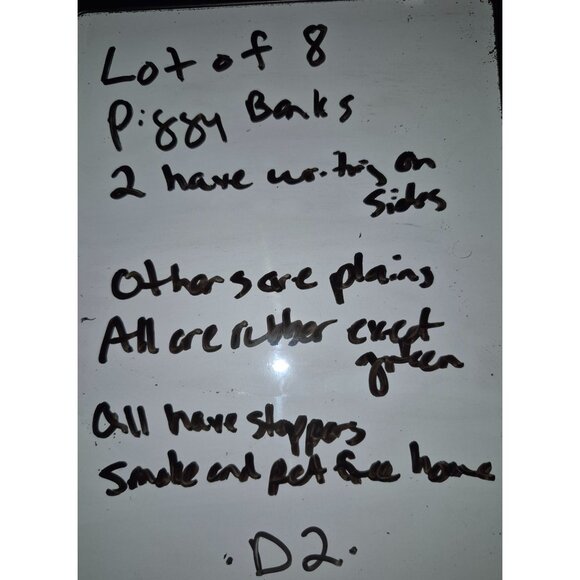 Lot of 8
Piggy Banks
2 have writing on
sides
Others are plains
All are rubber except
green
All have stoppers
Smoke and pet free home
. D2 .